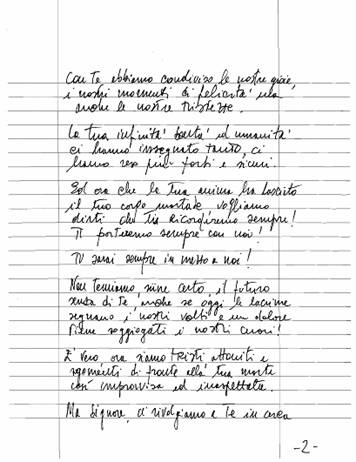 Con Te abbiamo condiviso le nostre gioie,
i nostri momenti di felicità ma
anche le nostre tristezze.
La tua infinità bontà ed umanità
ci hanno insegnato tanto, ci
hanno reso più forti e sicuri.
Ed ora che la Tua anima ha lasciato
il tuo corpo mortale vogliamo
dirti che Tia Ricorderemo sempre!
Ti porteremo sempre con noi!
Tu sarai sempre in mezzo a noi!
Non Temiamo certo, il futuro
senza di Te, anche se oggi le lacrime
segnano i nostri volti e un dolore
i nostri cuori!
E' vero ora siamo tristi attoniti e
sgomenti di fronte alla tua morte
così improvvisa ed inaspettata.
Ma Signore, ci rivolgiamo a Te in
-2-